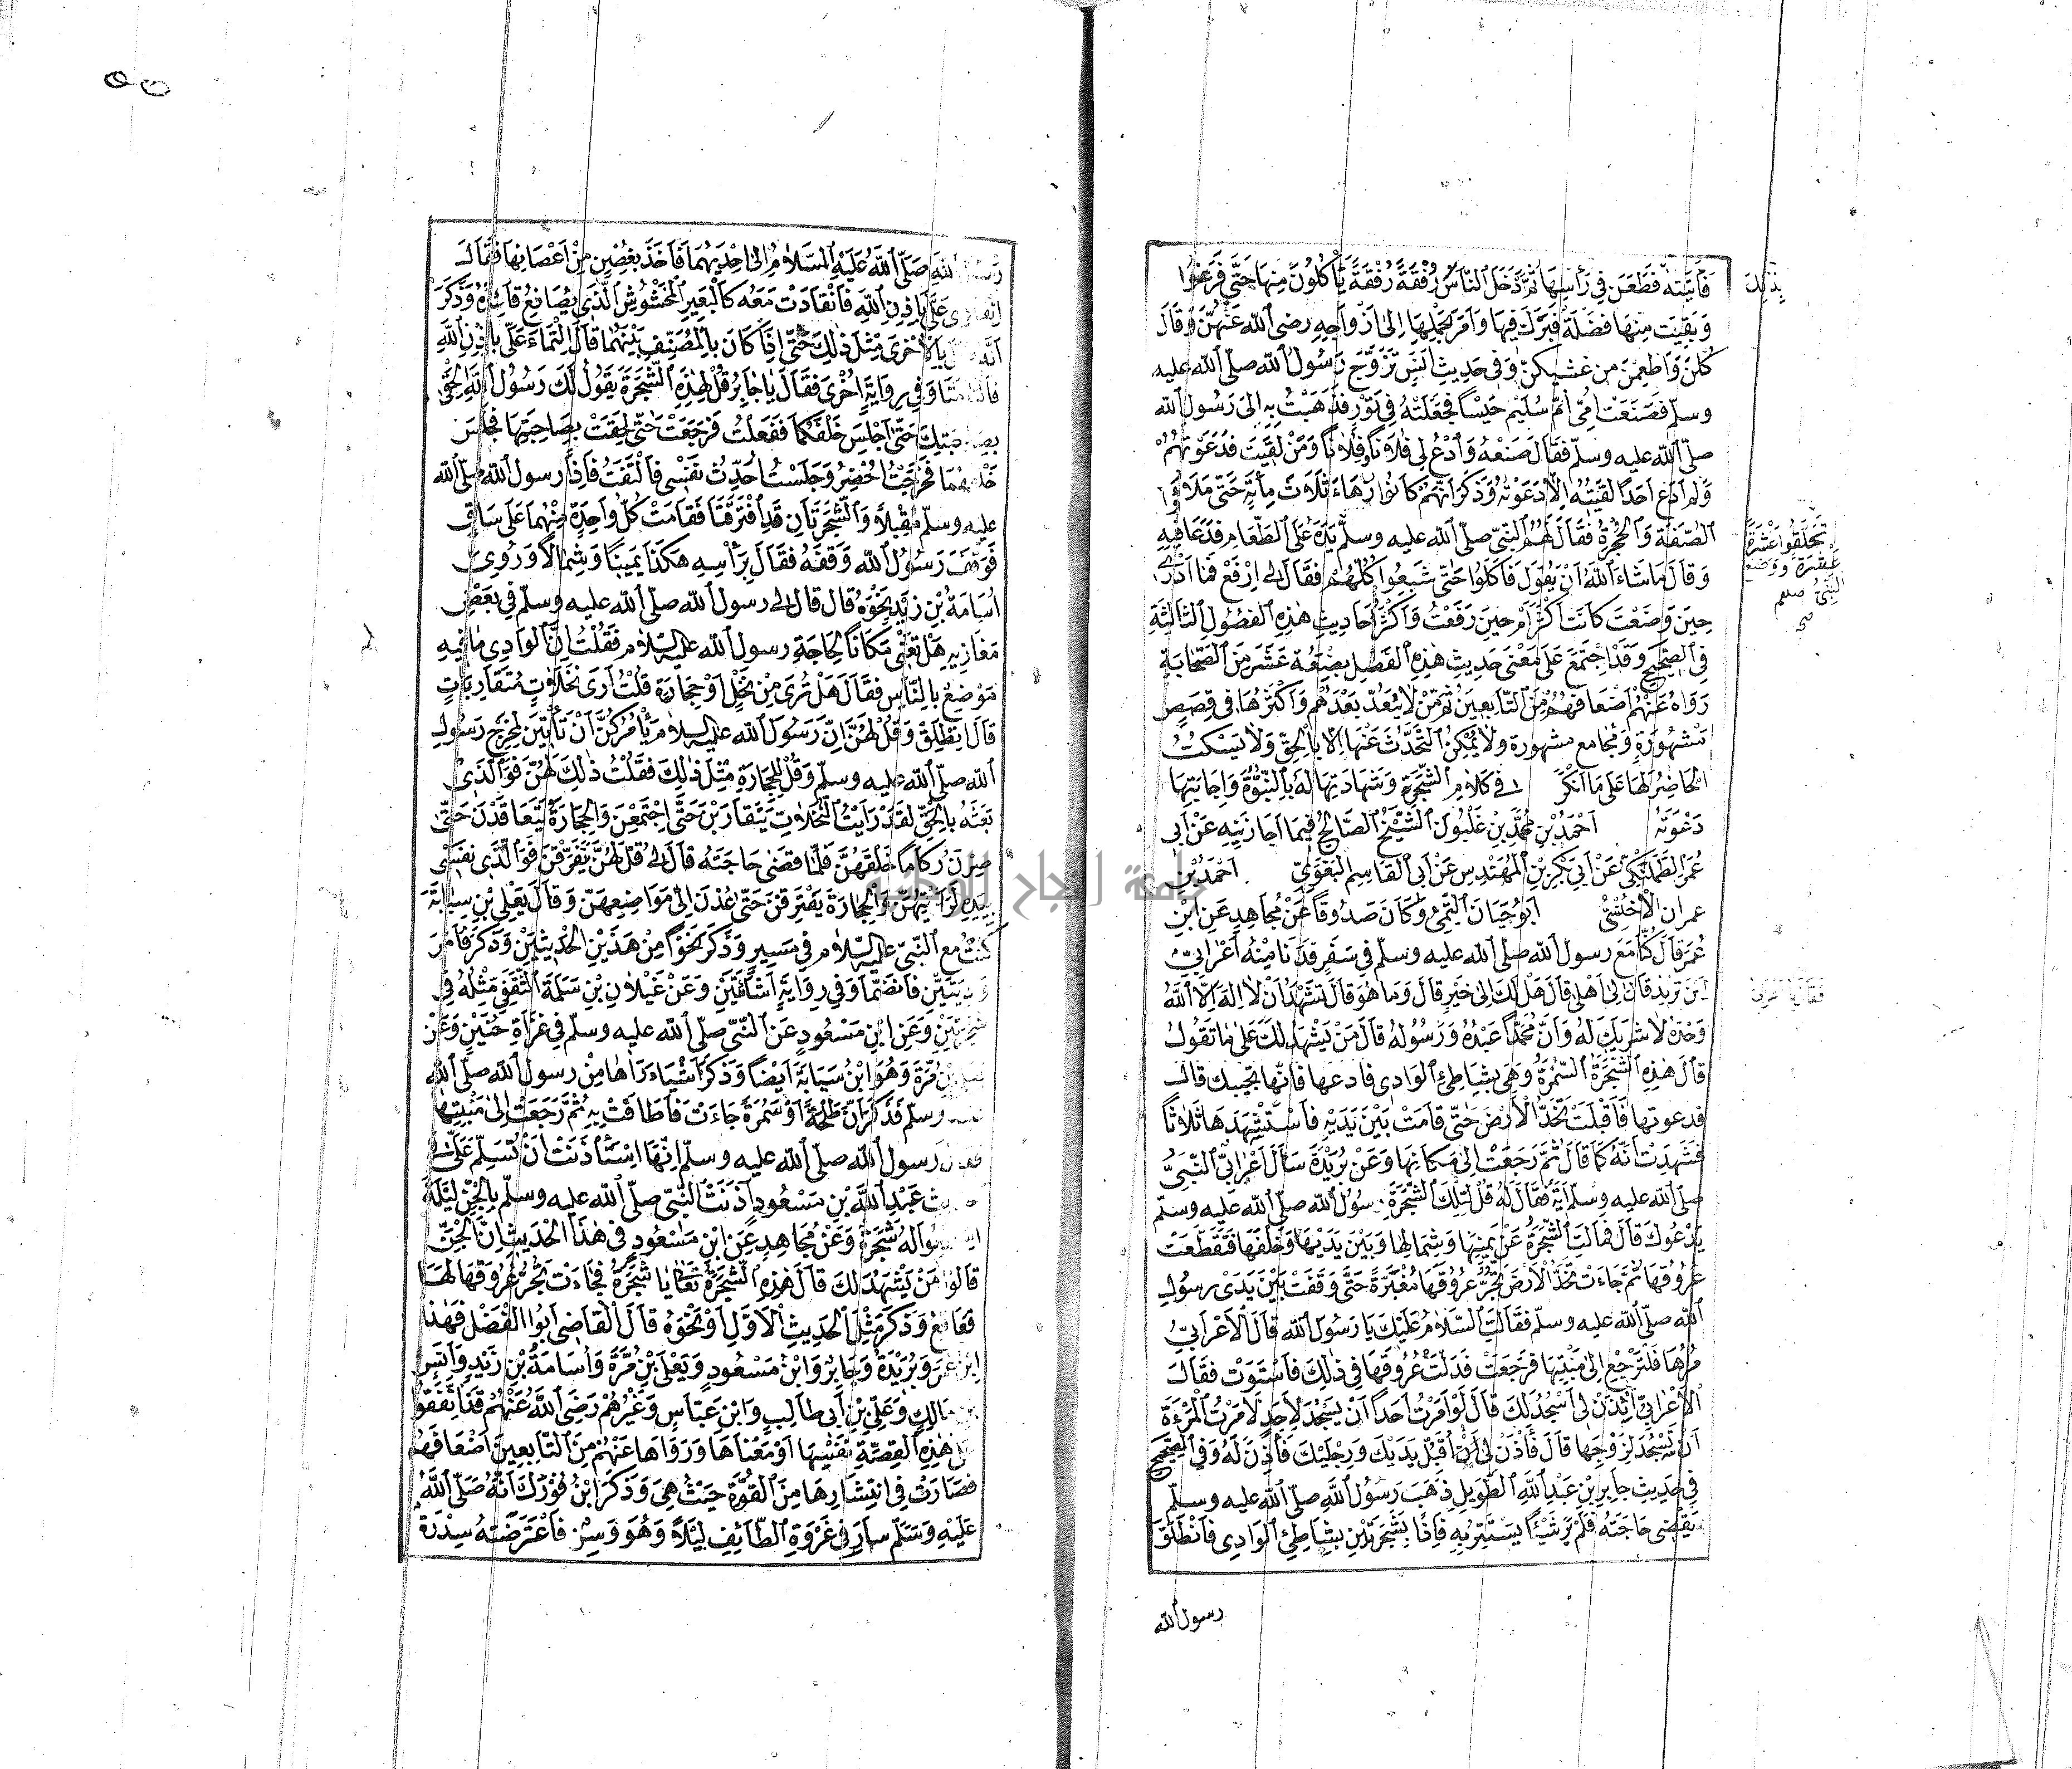 فَأَتَيْتُهُ فَطَعَنَ فِي رَأْسِهَا ثُمَّ دَخَلَ النَّاسُ رُفْقَةً رُفْقَةً يَأْكُلُونَ مِنْهَا حَتَّى فَرَغُوا
بِذَلِكَ
وَبَقِيَتْ مِنْهَا فَضْلَةٌ فَبَرَّكَ فِيهَا وَأَمَرَ بِحَمْلِهَا إِلَى أَزْوَاجِهِ رضى الله عَنْهُنَّ وَقَالَ
كُلْنَ وَأَطْعِمْنَ مَنْ غَشِيَكُنَّ وَفِي حَدِيثِ أَنَسٍ تَزَوَّجَ رَسُولُ اللَّه صَلَّى الله عليه
وسلّم فَصَنَعَتْ أُمِّي أُمُّ سُلَيْمٍ حَيْسًا فَجَعَلَتْهُ فِي تَوْرٍ فَذَهَبْتُ بِهِ إِلَى رَسُولِ الله
صلّى الله عليه وسلّم فَقَالَ ضَعْهُ وَادْعُ لِي فُلَانًا وَفُلَانًا وَمَنْ لَقِيتَ فَدَعَوْتُهُمْ
وَلَمْ أَدَعْ أَحَدًا لَقِيتُهُ إِلَّا دَعَوْتُهُ وَذَكَرَ أَنَّهُمْ كَانُوا زُهَاءَ ثَلَاثَ مِائَةٍ حَتَّى مَلَأُوا
الصُّفَّةَ وَالْحُجْرَةَ فَقَالَ لَهُمُ النَّبِيُّ صَلَّى الله عليه وسلّم يَدَهُ عَلَى الطَّعَامِ فَدَعَا فِيهِ
تَحَلَّقُوا عَشَرَةً
عَشَرَةً وَوَضَعَ
النَّبِيُّ صلعم
صح
وَقَالَ مَا شَاءَ اللَّهُ أَنْ يَقُولَ فَأَكَلُوا حَتَّى شَبِعُوا كُلُّهُمْ فَقَالَ لِي ارْفَعْ فَمَا أَدْرِي
حِينَ وَضَعْتُ كَانَتْ أَكْثَرَ أَمْ حِينَ رَفَعْتُ وَأَكْثَرُ أَحَادِيثِ هَذِهِ الْفُصُولِ الثَّالِثَةِ
فِي الصَّحِيحِ وَقَدِ اجْتَمَعَ عَلَى مَعْنَى حَدِيثِ هَذِهِ الْفَصْلِ بِضْعَةَ عَشَرَ مِنَ الصَّحَابَةِ
رَوَاهُ عَنْهُمْ أَضْعَافُهُمْ مِنَ التَّابِعِينَ ثُمَّ مَنْ لَا يُعَدُّ بَعْدَهُمْ وَأَكْثَرُهَا فِي قِصَصٍ
مَشْهُورَةٍ وَمَجَامِعَ مشهورة وَلَا يُمْكِنُ التَّحَدُّثُ عَنْهَا إِلَّا بِالْحَقِّ وَلَا يَسْكُتُ
الْحَاضِرُ لَهَا عَلَى مَا أَنْكَرَ فِي كَلَامِ الشَّجَرَةِ وَشَهَادَتِهَا لَهُ بِالنُّبُوَّةِ وَإِجَابَتِهَا
دَعْوَتَهُ أَحْمَدُ بْنُ مُحَمَّدِ بْنِ غَلْبُونَ الشَّيْخُ الصَّالِحُ فِيمَا أَجَازَنِيهِ عَنْ أَبِي
عُمَرَ الطَّلَمَنْكِيِّ عَنْ أَبِي بَكْرِ بْنِ الْمُهَنْدِسِ عَنْ أَبِي الْقَاسِمِ الْبَغَوِيِّ أَحْمَدُ بْنُ
عمران الْأَخْنَسِيُّ أَبُو حَيَّانَ التَّيْمِيُّ وَكَانَ صَدُوقًا عَنْ مُجَاهِدٍ عَنِ ابْنِ
عُمَرَ قَالَ كُنَّا مَعَ رسول الله صلى الله عليه وسلّم فِي سَفَرٍ فَدَنَا مِنْهُ أَعْرَابِيٌّ
أَيْنَ تُرِيدُ قَالَ إِلَى أَهْلِي قَالَ هَلْ لَكَ إِلَى خَيْرٍ قَالَ وَمَا هُوَ قَالَ تَشْهَدُ أَنْ لَا إِلَهَ إِلَّا اللَّهُ
فَقَالَ يَا أعرابي
وَحْدَهُ لَا شَرِيكَ لَهُ وَأَنَّ مُحَمَّدًا عَبْدُهُ وَرَسُولُهُ قَالَ مَنْ يَشْهَدُ لَكَ عَلَى مَا تَقُولُ
قَالَ هَذِهِ الشَّجَرَةُ السَّمُرَةُ وَهِيَ بِشَاطِئِ الْوَادِي فَادعها فَإِنَّهَا تجيبك قَالَ
فدعوتها فَأَقْبَلَتْ تَخُدُّ الْأَرْضَ حَتَّى قَامَتْ بَيْنَ يَدَيْهِ فَاسْتَشْهَدَهَا ثَلَاثًا
فَشَهِدَتْ أَنَّهُ كَمَا قَالَ ثُمَّ رَجَعَتْ إِلَى مَكَانِهَا وَعَنْ بُرَيْدَةَ سَأَلَ أَعْرَابِيٌّ النَّبِيَّ
صَلَّى الله عليه وسلّم آيَةً فَقَالَ لَهُ قُلْ لِتِلْكَ الشَّجَرَةِ رَسُولُ الله صَلَّى الله عَلَيه وسلّم
يَدْعُوكَ قَالَ فَمَالَتِ الشَّجَرَةُ عَنْ يَمِينِهَا وَشِمَالِهَا وَبَيْنَ يَدَيْهَا وَخَلْفَهَا فَتَقَطَّعَتْ
عُرُوقُهَا ثُمَّ جَاءَتْ تَخُدُّ الْأَرْضَ تَجُرُّ عُرُوقَهَا مُغْبَرَّةً حَتَّى وَقَفَتْ بَيْنَ يَدَيْ رَسُولِ
اللَّه صَلَّى الله عليه وسلّم فَقَالَتِ السَّلَامُ عَلَيْكَ يَا رَسُولَ الله قَالَ الْأَعْرَابِيُّ
مُرْهَا فَلْتَرْجِعْ إِلَى مَنْبَتِهَا فَرَجَعَتْ فَدَلَّتْ عُرُوقَهَا فِي ذَلِكَ فَاسْتَوَتْ فَقَالَ
الْأَعْرَابِيُّ ائْذَنْ لِي أَسْجُدُ لَكَ قَالَ لَوْ أَمَرْتُ أَحَدًا أَنْ يَسْجُدَ لِأَحَدٍ لَأَمَرْتُ الْمَرْءَةَ
أَنْ تَسْجُدَ لِزَوْجِهَا قَالَ فَأْذَنْ لِي أَنْ أُقَبِّلَ يَدَيْكَ وَرِجْلَيْكَ فَأَذِنَ لَهُ وَفِي الصَّحِيحِ
فِي حَدِيثِ جَابِرِ بْنِ عَبْدِ اللَّهِ الطَّوِيلِ ذَهَبَ رَسُولُ اللَّهِ صَلَّى الله عليه وسلّم
يَقْضِي حَاجَتَهُ فَلَمْ يَرَ شَيْئًا يَسْتَتِرُ بِهِ فَإِذَا بِشَجَرَتَيْنِ بِشَاطِئِ الْوَادِي فَانْطَلَقَ
رسول الله
رَسُولُ اللَّهِ صَلَّى اللَّهُ عَلَيْهِ السَّلَامُ إِلَى إِحْدَيهُمَا فَأَخَذَ بِغُصْنٍ مِنْ أَعْصَانِهَا فَقَالَ
انْقَادِي عَلَيَّ بِإِذْنِ اللَّهِ فَانْقَادَتْ مَعَهُ كَالْبَعِيرِ الْمَخْشُوشِ الَّذِي يُصَانِعُ قَائِدَهُ وَذَكَرَ
أَنَّهُ فَعَلَ بِالْأُخْرَى مِثْلَ ذَلِكَ حَتَّى إِذَا كَانَ بِالْمَنْصَفِ بَيْنَهُمَا قَالَ الْتَئِمَا عَلَيَّ بِإِذْنِ اللَّهِ
فَالْتَأَمَتَا وَفِي رِوَايَةٍ أُخْرَى فَقَالَ يَا جَابِرُ قُلْ لِهَذِهِ الشَّجَرَةِ يَقُولُ لَكِ رَسُولُ اللَّهِ الْحَقِي
بِصَاحِبَتِكِ حَتَّى أَجْلِسَ خَلْفَكُمَا فَفَعَلْتُ فَرَجَعَتْ حَتَّى لَحِقَتْ بِصَاحِبَتِهَا فَجَلَسَ
خَلْفَهُمَا فَخَرَجْتُ أُحْضِرُ وَجَلَسْتُ أُحَدِّثُ نَفْسِي فَالْتَفَتُّ فَإِذَا رسول الله صلّى الله
عليه وسلّم مُقْبِلًا وَالشَّجَرَتَانِ قَدِ افْتَرَقَتَا فَقَامَتْ كُلُّ وَاحِدَةٍ مِنْهُمَا عَلَى سَاقٍ
فَوَقَفَ رَسُولُ الله وَقْفَةً فَقَالَ بِرَأْسِهِ هَكَذَا يَمِينًا وَشِمَالًا وَرَوَى
أُسَامَةُ بْنُ زَيْدٍ نَحْوَهُ قَالَ قَالَ لِي رسول الله صلّى الله عليه وسلّم فِي بَعْضِ
مَغَازِيهِ هَلْ تَعْنِي مَكَانًا لِحَاجَةِ رسول الله عليه السلام فَقُلْتُ إِنَّ الْوَادِي مَا فِيهِ
مَوْضِعٌ بِالنَّاسِ فَقَالَ هَلْ تَرَى مِنْ نَخْلٍ أَوْ حِجَارَةٍ قُلْتُ أَرَى نَخَلَاتٍ مُتَقَارِبَاتٍ
قَالَ انْطَلِقْ وَقُلْ لَهُنَّ إِنَّ رَسُولَ الله عليه السلام يَأْمُرُكُنَّ أَنْ تَأْتِينَ لِمَخْرَجِ رَسُولِ
الله صَلَّى الله عليه وسلّم وَقُلْ لِلْحِجَارَةِ مِثْلَ ذَلِكَ فَقُلْتُ ذَلِكَ لَهُنَّ فَوَالَّذِي
بَعَثَهُ بِالْحَقِّ لَقَدْ رَأَيْتُ النَّخَلَاتِ يَتَقَارَبْنَ حَتَّى اجْتَمَعْنَ وَالْحِجَارَةَ يَتَعَاقَدْنَ حَتَّى
صِرْنَ رُكَامًا خَلْفَهُنَّ فَلَمَّا قَضَى حَاجَتَهُ قَالَ لِي قُلْ لَهُنَّ يَفْتَرِقْنَ فَوَالَّذِي نَفْسِي
بِيَدِهِ لَرَأَيْتُهُنَّ وَالْحِجَارَةَ يَفْتَرِقْنَ حَتَّى عُدْنَ إِلَى مَوَاضِعِهِنَّ وَقَالَ يَعْلَى بْنُ سِيَابَةَ
كُنْتُ مع النَّبِيِّ عليه السلام فِي مَسِيرٍ وَذَكَرَ نَحْوًا مِنْ هَذَيْنِ الْحَدِيثَيْنِ وَذَكَرَ فَأَمَرَ
وَدِيَّتَيْنِ فَانْضَمَّتَا وَفِي رِوَايَةٍ أَشَاءَتَيْنِ وَعَنْ غَيْلَانَ بْنِ سَلَمَةَ الثَّقَفِيِّ مِثْلُهُ فِي
شَجَرَتَيْنِ وَعَنِ ابْنِ مَسْعُودٍ عَنِ النَّبِيِّ صَلَّى الله عليه وسلّم فِي غَزَاةِ حُنَيْنٍ وَعَنْ
يَعْلَى بْنِ مُرَّةَ وَهُوَ ابْنُ سَيَابَةَ أَيْضًا وَذَكَرَ أَشْيَاءَ رَآهَا مِنْ رسول الله صَلَّى الله
عليه وسلّم فَذَكَرَ أَنَّ طَلْحَةً أَوْ سَمُرَةً جَاءَتْ فَأَطَافَتْ بِهِ ثُمَّ رَجَعَتْ إِلَى مَنْبِتِهَا
فَقَالَ رسول الله صلّى الله عليه وسلّم إِنَّهَا اسْتَأْذَنَتْ أَنْ تُسَلِّمَ عَلَيَّ
حديث عَبْدِ اللَّهِ بْنِ مَسْعُودٍ آذَنَتِ النَّبِيَّ صَلَّى الله عليه وسلّم بِالْجِنِّ لَيْلَةَ
اسْتَمَعُوا لَهُ شَجَرَةٌ وَعَنْ مُجَاهِدٍ عَنِ ابْنِ مَسْعُودٍ فِي هَذَا الْحَدِيثِ أَنَّ الْجِنَّ
قَالُوا مَنْ يَشْهَدُ لَكَ قَالَ هَذِهِ الشَّجَرَةُ تَعَالَيْ يَا شَجَرَةُ فَجَاءَتْ تَجُرُّ عُرُوقَهَا لَهَا
قَعَاقِعُ وَذَكَرَ مِثْلَ الْحَدِيثِ الْأَوَّلِ أَوْ نَحْوَهُ قَالَ الْقَاضِي أَبُوا الْفَضْلِ فَهَذَا
ابْنُ عُمَرَ وَبُرَيْدَةُ وَجَابِرٌ وَابْنُ مَسْعُودٍ وَيَعْلَى بْنُ مُرَّةَ وَأُسَامَةُ بْنُ زَيْدٍ وَأَنَسُ
بْنُ مَالِكٍ وَعَلِيُّ بْنُ أَبِي طَالِبٍ وَابْنُ عَبَّاسٍ وَغَيْرُهُمْ رَضِيَ اللَّهُ عَنْهُمْ قَدِ اتَّفَقُوا
عَلَى هَذِهِ الْقِصَّةِ نَفْسِهَا أَوْ مَعْنَاهَا وَرَوَاهَا عَنْهُمْ مِنَ التَّابِعِينَ أَضْعَافُهُمْ
فَصَارَتْ فِي انْتِشَارِهَا مِنَ الْقُوَّةِ حَيْثُ هِيَ وَذَكَرَ ابْنُ فُورَكَ أَنَّهُ صَلَّى اللَّهُ
عَلَيْهِ وَسَلَّمَ سَارَ فِي غَزْوَةِ الطَّائِفِ لَيْلًا وَهُوَ وَسِنٌ فَاعْتَرَضَتْهُ سِدْرَةٌ
جامعة النجاح الوطنية